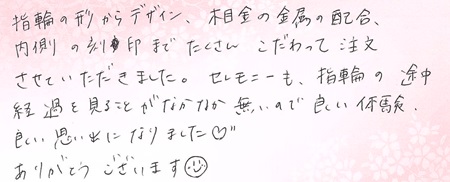 指輪の形からデザイン、相金の金属の配合、
内側の刻印までたくさんこだわって注文
させていただきました。セレモニーも、指輪の途中
経過を見ることがなかなか無いので良い体験、
良い思い出になりました♡"
ありがとうございます☺